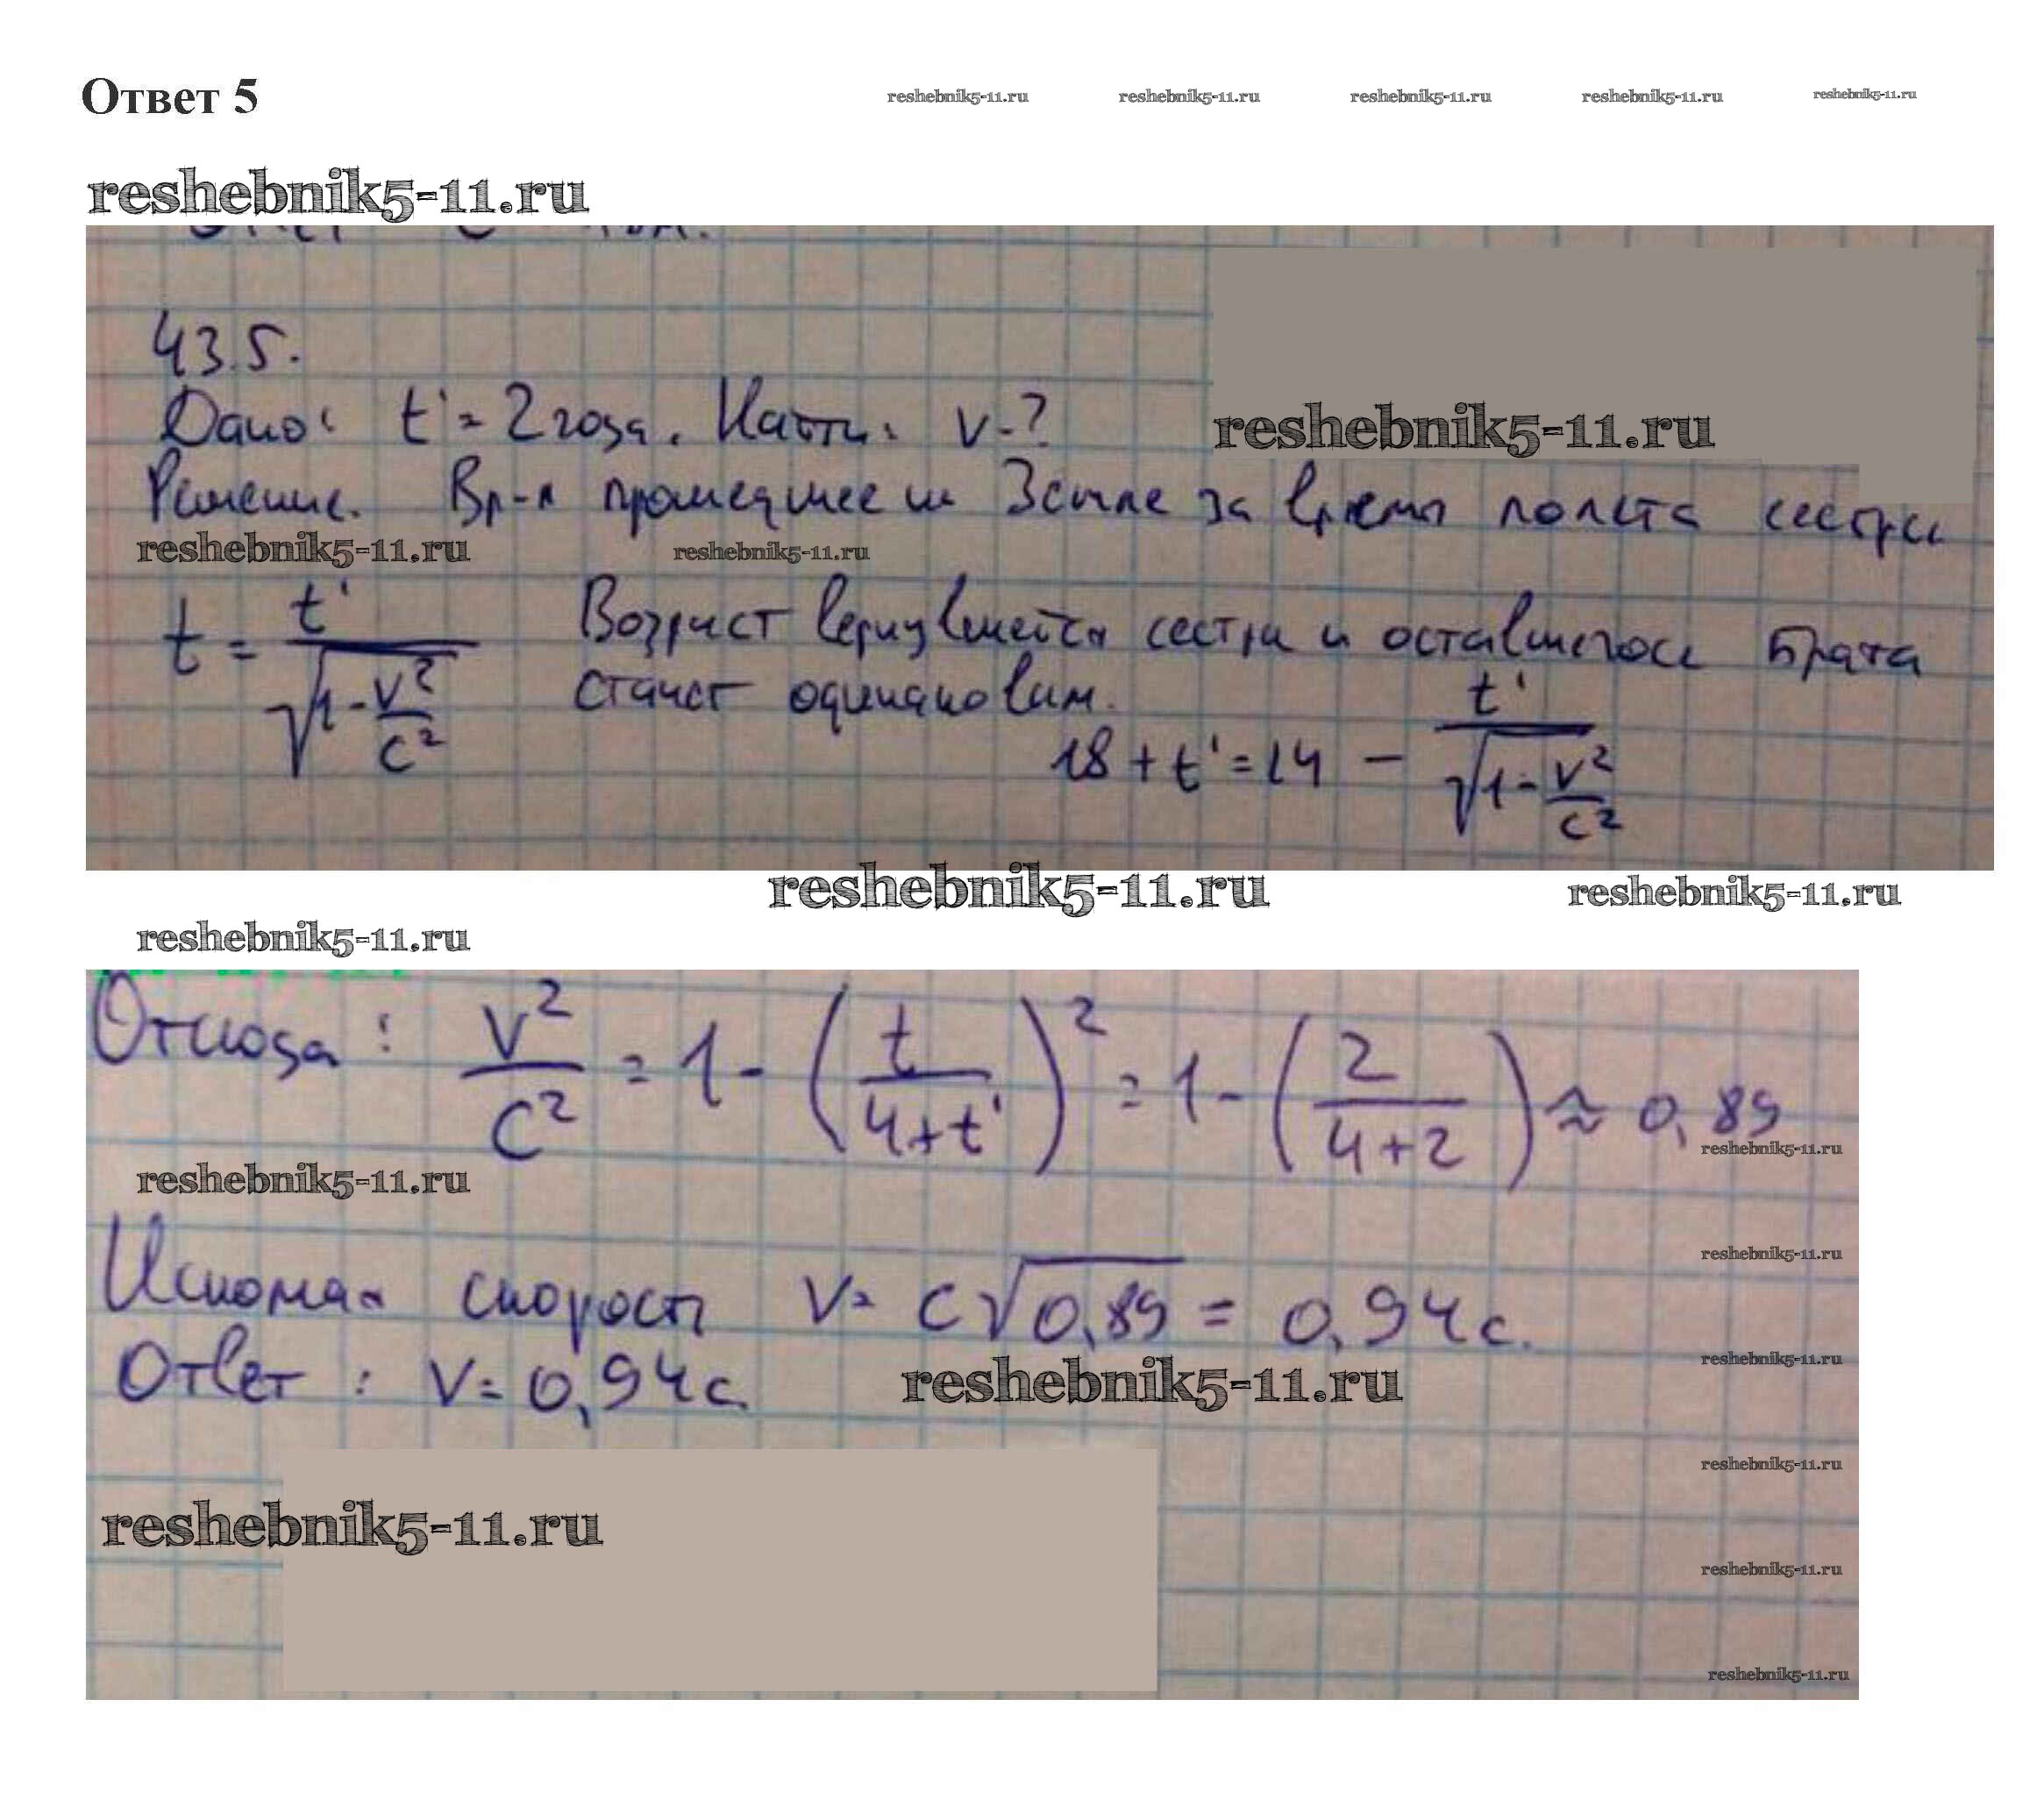 Ответ 5
reshebnik5-11.ru reshebnik5-11.ru reshebnik5-11.ru reshebnik5-11.ru reshebnik5-11.ru
reshebnik5-11.ru
43.5.
Дано: t' = 2 года. Найти: v-?
reshebnik5-11.ru
Решение. Вр-я прошедшее на Земле за время полета сестры
reshebnik5-11.ru reshebnik5-11.ru
t = t' / √(1 - v²/c²) Возраст вернувшейся сестры и оставшегося брата
станет одинаковым.
18 + t' = 14 - t' / √(1 - v²/c²)
reshebnik5-11.ru reshebnik5-11.ru
reshebnik5-11.ru
Отсюда: v²/c² = 1 - (t / 4+t')² = 1 - (2 / 4+2) ≈ 0,89
reshebnik5-11.ru
reshebnik5-11.ru
reshebnik5-11.ru
Искомая скорость v = c√0,89 = 0,94c.
reshebnik5-11.ru
Ответ: v = 0,94c.
reshebnik5-11.ru
reshebnik5-11.ru
reshebnik5-11.ru
reshebnik5-11.ru
reshebnik5-11.ru